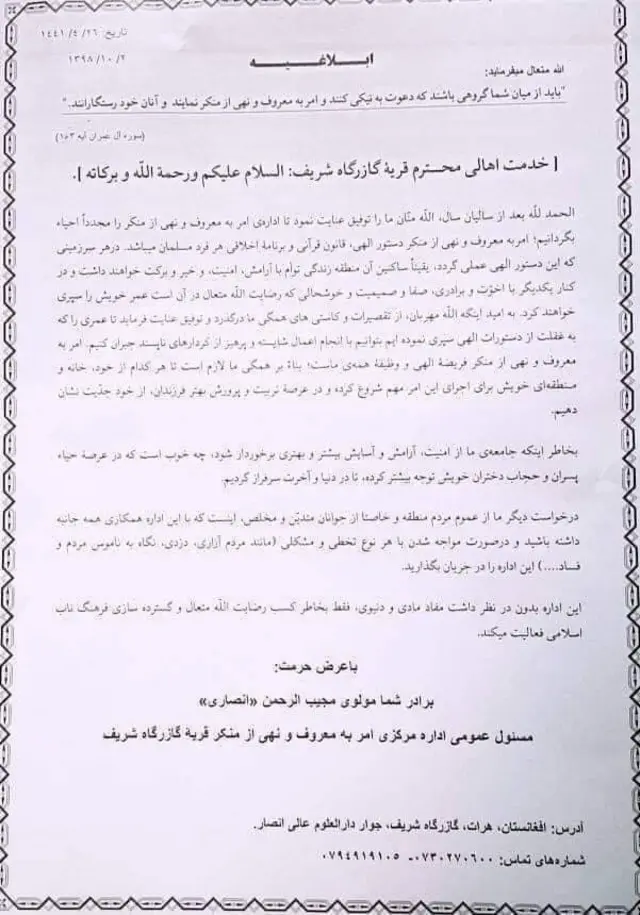 تاریخ: ۱۴۴۱/۴/۲۶
۱۳۹۸/۱۰/۲
ابلاغیه
الله متعال میفرماید:
"باید از میان شما گروهی باشند که دعوت به نیکی کنند و امر به معروف و نهی از منکر نمایند و آنان خود رستگارانند."
(سوره آل عمران آیه ۱۰۳)
[ خدمت اهالی محترم قریهٔ گازرگاه شریف: السلام علیکم ورحمة اللّه و برکاته ].
الحمد للّه بعد از سالیان سال، اللّه منّان ما را توفیق عنایت نمود تا اداره‌ی امر به معروف و نهی از منکر را مجدداً احیاء
بگردانیم؛ امر به معروف و نهی از منکر دستور الهی، قانون قرآنی و برنامهٔ اخلاقی هر فرد مسلمان میباشد. درهر سرزمینی
که این دستور الهی عملی گردد، یقیناً ساکنین آن منطقه زندگی توأم با آرامش، امنیت، و خیر و برکت خواهند داشت و در
کنار یکدیگر با اخوّت و برادری، صفا و صمیمیت و خوشحالی که رضایت اللّه متعال در آن است عمر خویش را سپری
خواهند کرد. به امید اینکه اللّه مهربان، از تقصیرات و کاستی های همگی ما درگذرد و توفیق عنایت فرماید تا عمری را که
به غفلت از دستورات الهی سپری نموده ایم بتوانیم با انجام اعمال شایسته و پرهیز از کردارهای ناپسند جبران کنیم. امر به
معروف و نهی از منکر فریضهٔ الهی و وظیفهٔ همه‌ی ماست؛ بناءً بر همگی ما لازم است تا هر کدام از خود، خانه و
منطقه‌ای خویش برای اجرای این امر مهم شروع کرده و در عرصهٔ تربیت و پرورش بهتر فرزندان، از خود جدّیت نشان
دهیم.
بخاطر اینکه جامعه‌ی ما از امنیت، آرامش و آسایش بیشتر و بهتری برخوردار شود، چه خوب است که در عرصهٔ حیاء
پسران و حجاب دختران خویش توجه بیشتر کرده، تا در دنیا و آخرت سرفراز گردیم.
درخواست دیگر ما از عموم مردم منطقه و خاصتا از جوانان متدیّن و مخلص، اینست که با این اداره همکاری همه جانبه
داشته باشید و درصورت مواجه شدن با هر نوع تخطی و مشکلی (مانند مردم آزاری، دزدی، نگاه به ناموس مردم و
فساد....) این اداره را در جریان بگذارید.
این اداره بدون در نظر داشت مفاد مادی و دنیوی، فقط بخاطر کسب رضایت اللّه متعال و گسترده سازی فرهنگ ناب
اسلامی فعالیت میکند.
باعرض حرمت:
برادر شما مولوی مجیب الرحمن «انصاری»
مسئول عمومی اداره مرکزی امر به معروف و نهی از منکر قریهٔ گازرگاه شریف
آدرس: افغانستان، هرات، گازرگاه شریف، جوار دارالعلوم عالی انصار.
شماره‌های تماس: ۰۷۳۰۲۷۰۶۰۰-۰۷۹۴۹۱۹۱۰۵